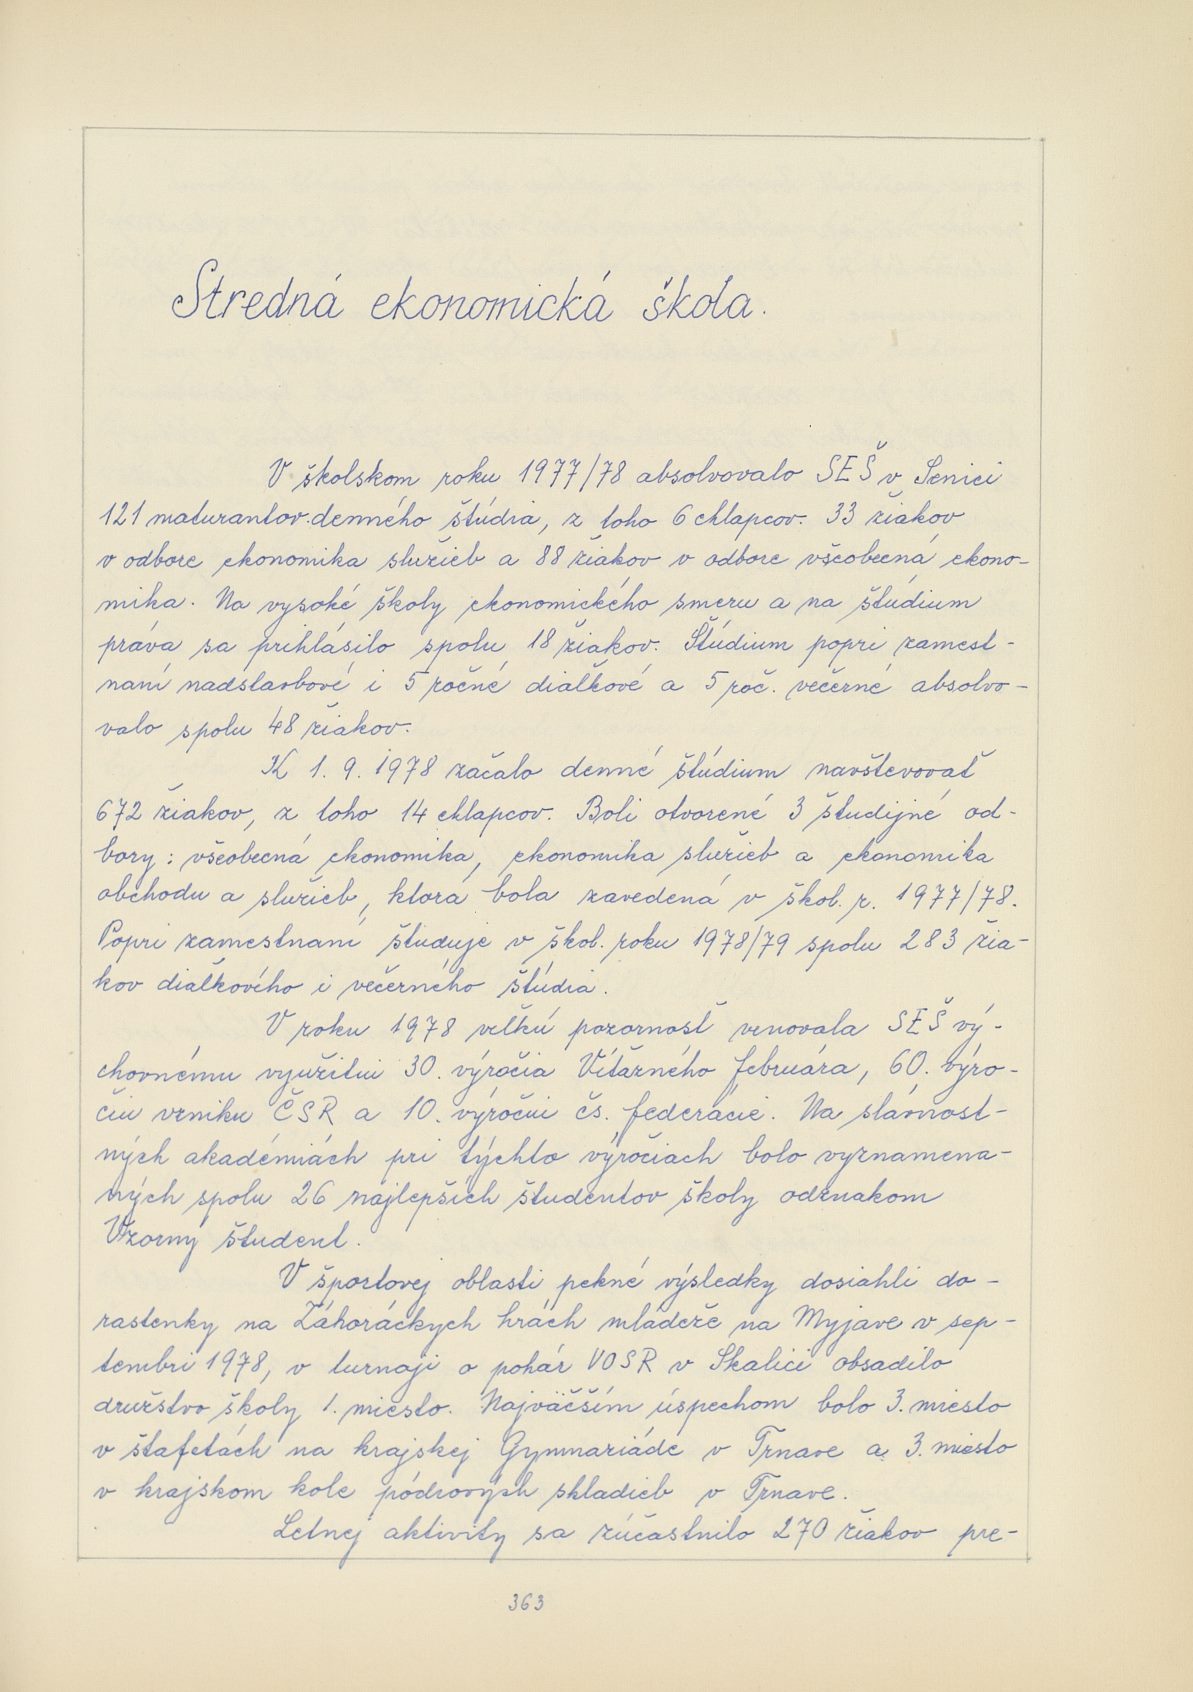 Stredná ekonomická škola.
V školskom roku 1977/78 absolvovalo SEŠ v Senici
121 maturantov denného štúdia, z toho 6 chlapcov. 33 žiakov
v odbore ekonomika služieb a 88 žiakov v odbore všeobecná ekono-
mika. Na vysoké školy ekonomického smeru a na štúdium
práva sa prihlásilo spolu 18 žiakov. Štúdium popri zamest-
naní nadstavbové i 5 ročné diaľkové a 5 roč. večerné absolvo-
valo spolu 48 žiakov.
K 1. 9. 1978 začalo denné štúdium navštevovať
672 žiakov, z toho 14 chlapcov. Boli otvorené 3 študijné od-
bory: všeobecná ekonomika, ekonomika služieb a ekonomika
obchodu a služieb, ktorá bola zavedená v škol. r. 1977/78.
Popri zamestnaní študuje v škol. roku 1978/79 spolu 283 žia-
kov diaľkového i večerného štúdia.
V roku 1978 veľkú pozornosť venovala SEŠ vý-
chovnému využitiu 30. výročia Víťazného februára, 60. výro-
čiu vzniku ČSR a 10. výročiu čs. federácie. Na slávnost-
ných akadémiách pri týchto výročiach bolo vyznamena-
ných spolu 26 najlepších študentov školy odznakom
Vzorný študent.
V športovej oblasti pekné výsledky dosiahli do-
rastenky na Záhoráckych hrách mládeže na Myjave v sep-
tembri 1978, v turnaji o pohár VOSR v Skalici obsadilo
družstvo školy 1. miesto. Najväčším úspechom bolo 3. miesto
v štafetách na krajskej Gymnaziáde v Trnave a 3. miesto
v krajskom kole pódiových skladieb v Trnave.
Letnej aktivity sa zúčastnilo 270 žiakov pre-
363